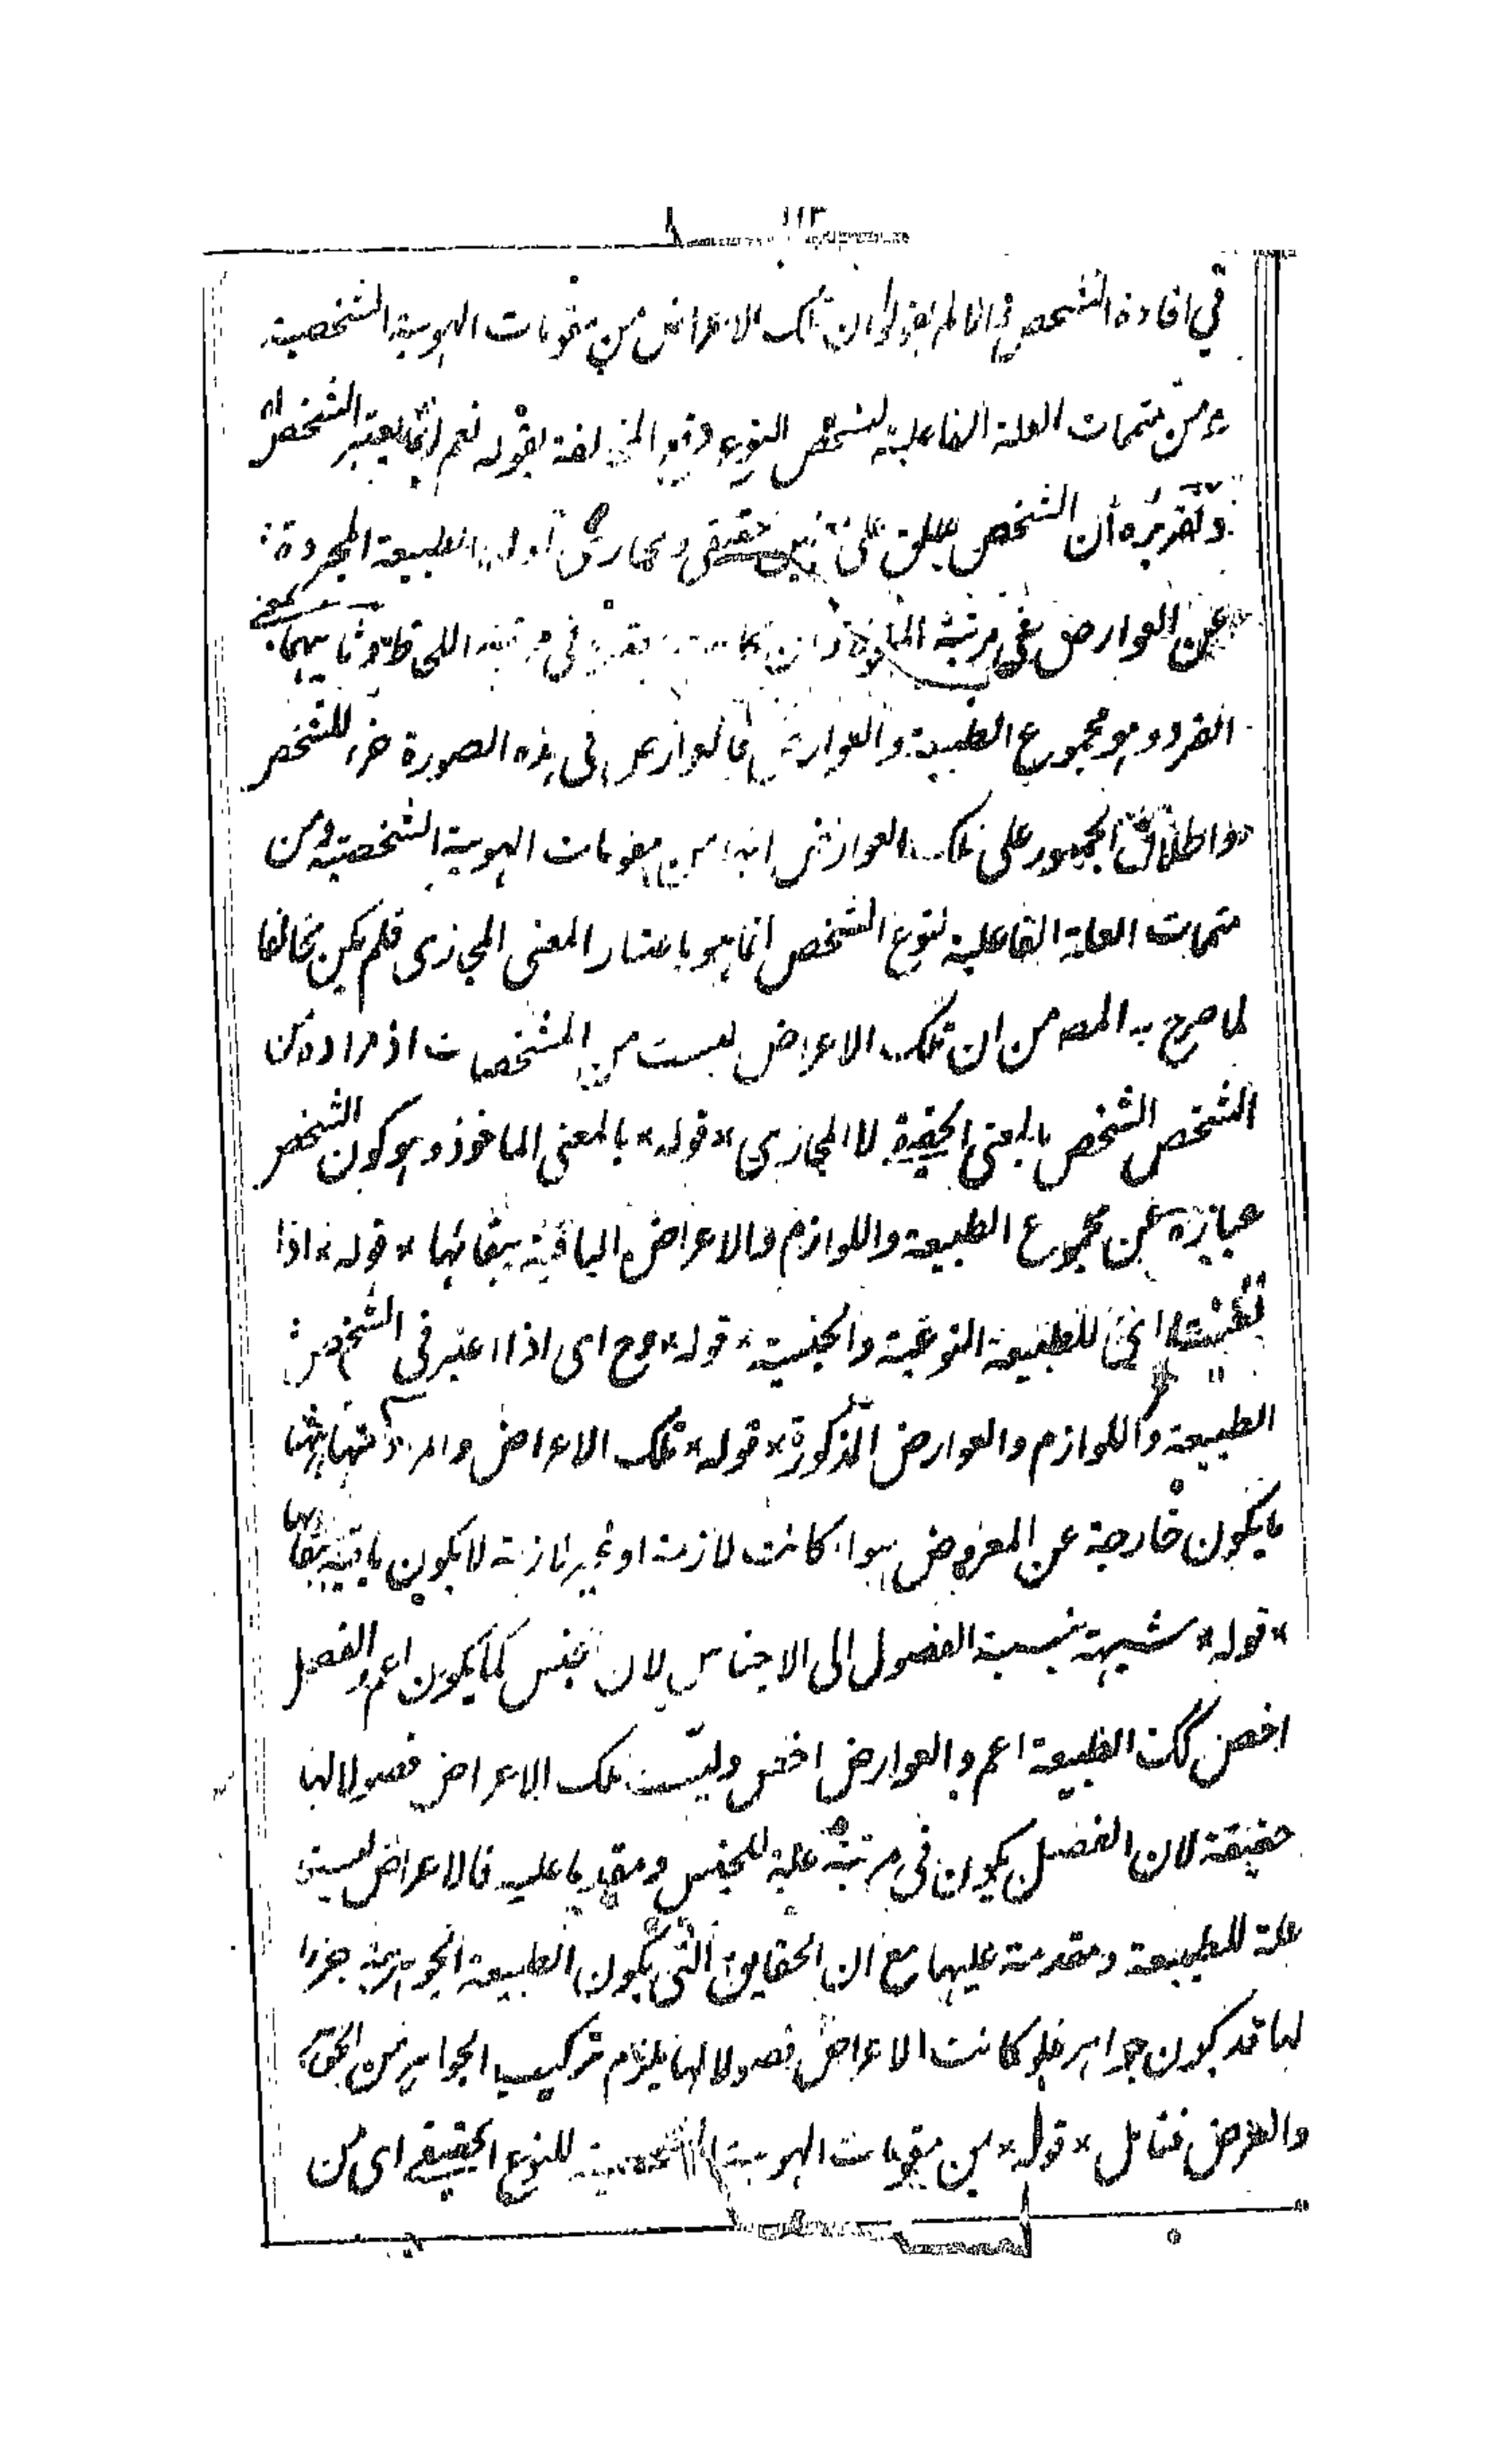 ١١٣
في افادة الشخص والا لم يقولوا ان تلك الاعراض من مقومات الهوية الشخصية
ومن متممات العلة الفاعلية لشخص النوع ودفع المخالفة بقوله نعم انما يعتبر الشخص
وتقريره أن الشخص يطلق على حقيقى و الطبيعة المجردة
عن العوارض في مرتبة وان كانت في مرتبة اللحاظ وثانيهما بمعنى
الفرد وهو مجموع الطبيعة والعوارض فالعوارض فى هذه الصورة جزء للشخص
واطلاق الجمهور على تلك العوارض انها من مقومات الهوية الشخصية ومن
متممات العلة الفاعلية لنوع الشخص انما هو باعتبار المعنى المجازى فلم يكن مخالفا
لما صرح به المصـ من ان تلك الاعراض ليست من المشخصات اذ مراده من
الشخص الشخص بالمعنى الحقيقي لا المجازى * قوله * بالمعنى الماخوذ وهو كون الشخص
عبارة عن مجموع الطبيعة واللوازم والاعراض الباقية ببقائها * قوله * اذا
للطبيعة النوعية والجنسية * قوله * وح اى اذا اعتبر فى الشخص
الطبيعة واللوازم والعوارض المذكورة * قوله * تلك الاعراض والمراد منها هنا
ما يكون خارجة عن المعروض سواء كانت لازمة او غير لازمة لا يكون باقية ببقائها
* قوله * شبيهة بنسبة الفصول الى الاجناس لان الجنس كما يكون اعم والفصل
اخص كك الطبيعة اعم والعوارض اخص وليست تلك الاعراض فصولا لها
حقيقة لان الفصل يكون فى مرتبة علية للجنس ومقدما عليه فالاعراض ليست
علة للطبيعة ومقدمة عليها مع ان الحقايق التى يكون الطبيعة الجوهرية جزءا
لها قد يكون جواهر فلو كانت الاعراض فصولا لها يلزم تركيب الجواهر من الجوهر
والعرض فتامل * قوله * من مقومات الهوية الشخصية للنوع الحقيقے اى من